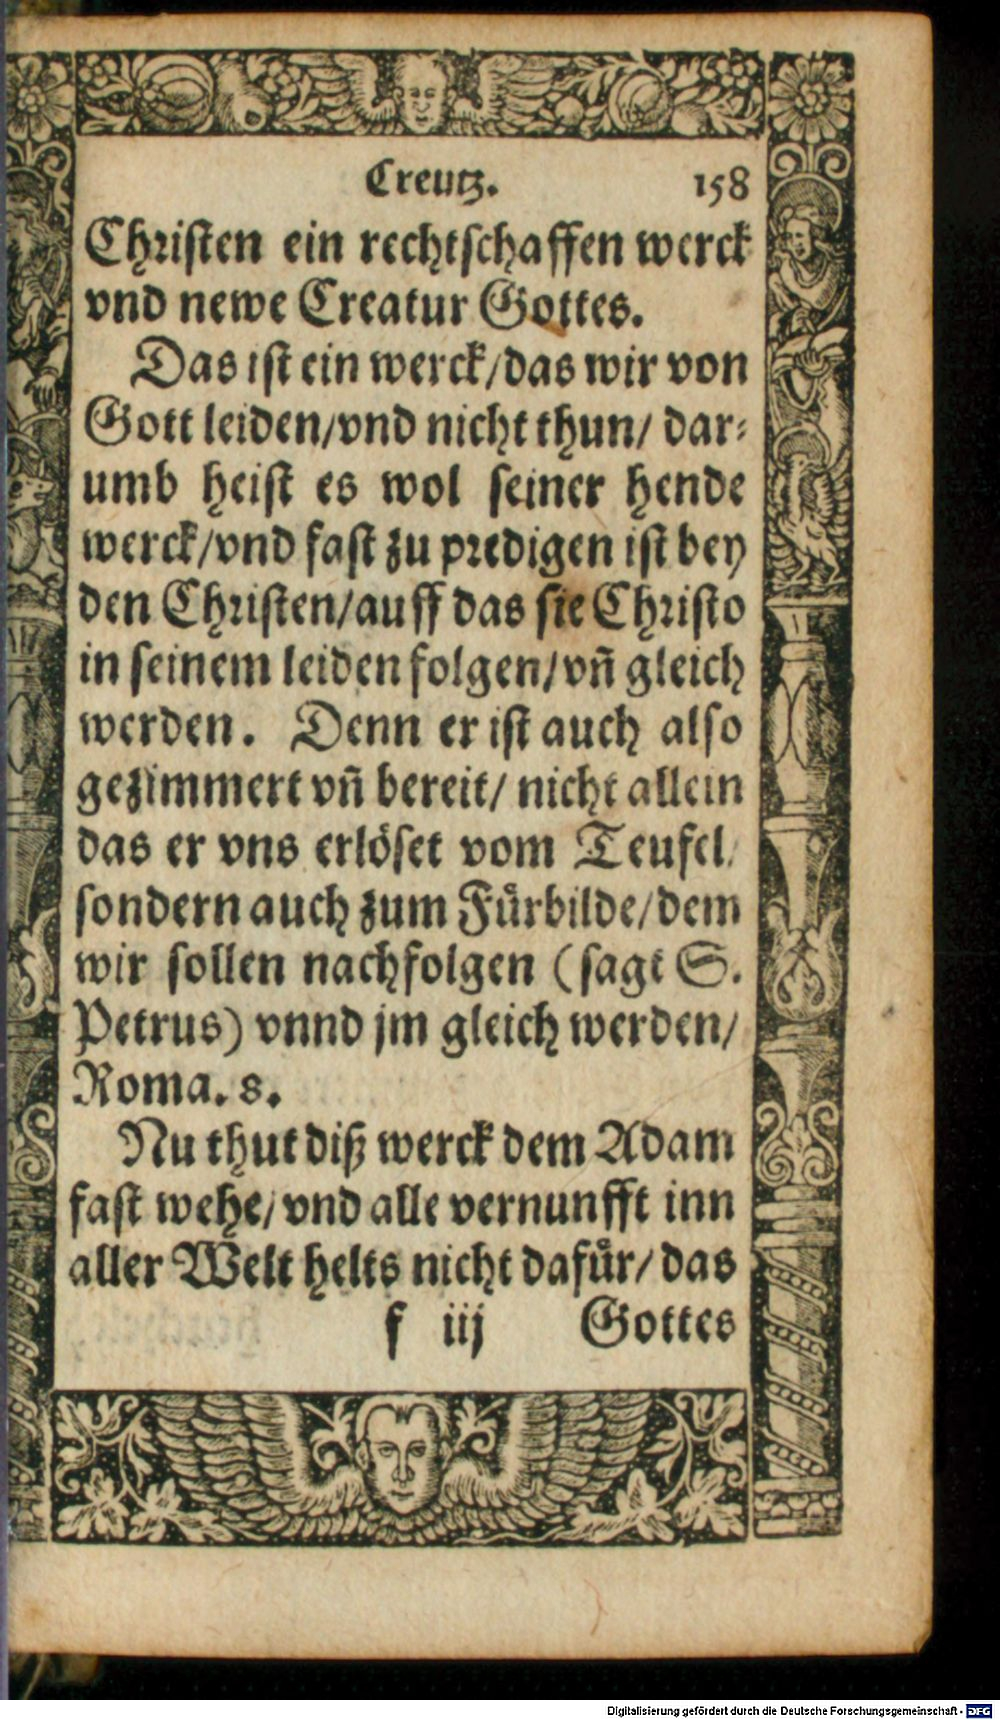 Creutz. 158
Christen ein rechtschaffen werck
vnd newe Creatur Gottes.
Das ist ein werck/das wir von
Gott leiden/vnd nicht thun/ dar⸗
umb heist es wol seiner hende
werck/vnd fast zu predigen ist bey
den Christen/auff das sie Christo
in seinem leiden folgen/vñ gleich
werden. Denn er ist auch also
gezimmert vñ bereit/ nicht allein
das er vns erlöset vom Teufel/
sondern auch zum Fuͤrbilde/dem
wir sollen nachfolgen (sagt S.
Petrus) vnnd jm gleich werden/
Roma. 8.
Nu thut diß werck dem Adam
fast wehe/vnd alle vernunfft inn
aller Welt helts nicht dafuͤr/ das
f iij Gottes
Digitalisierung gefördert durch die Deutsche Forschungsgemeinschaft - DFG